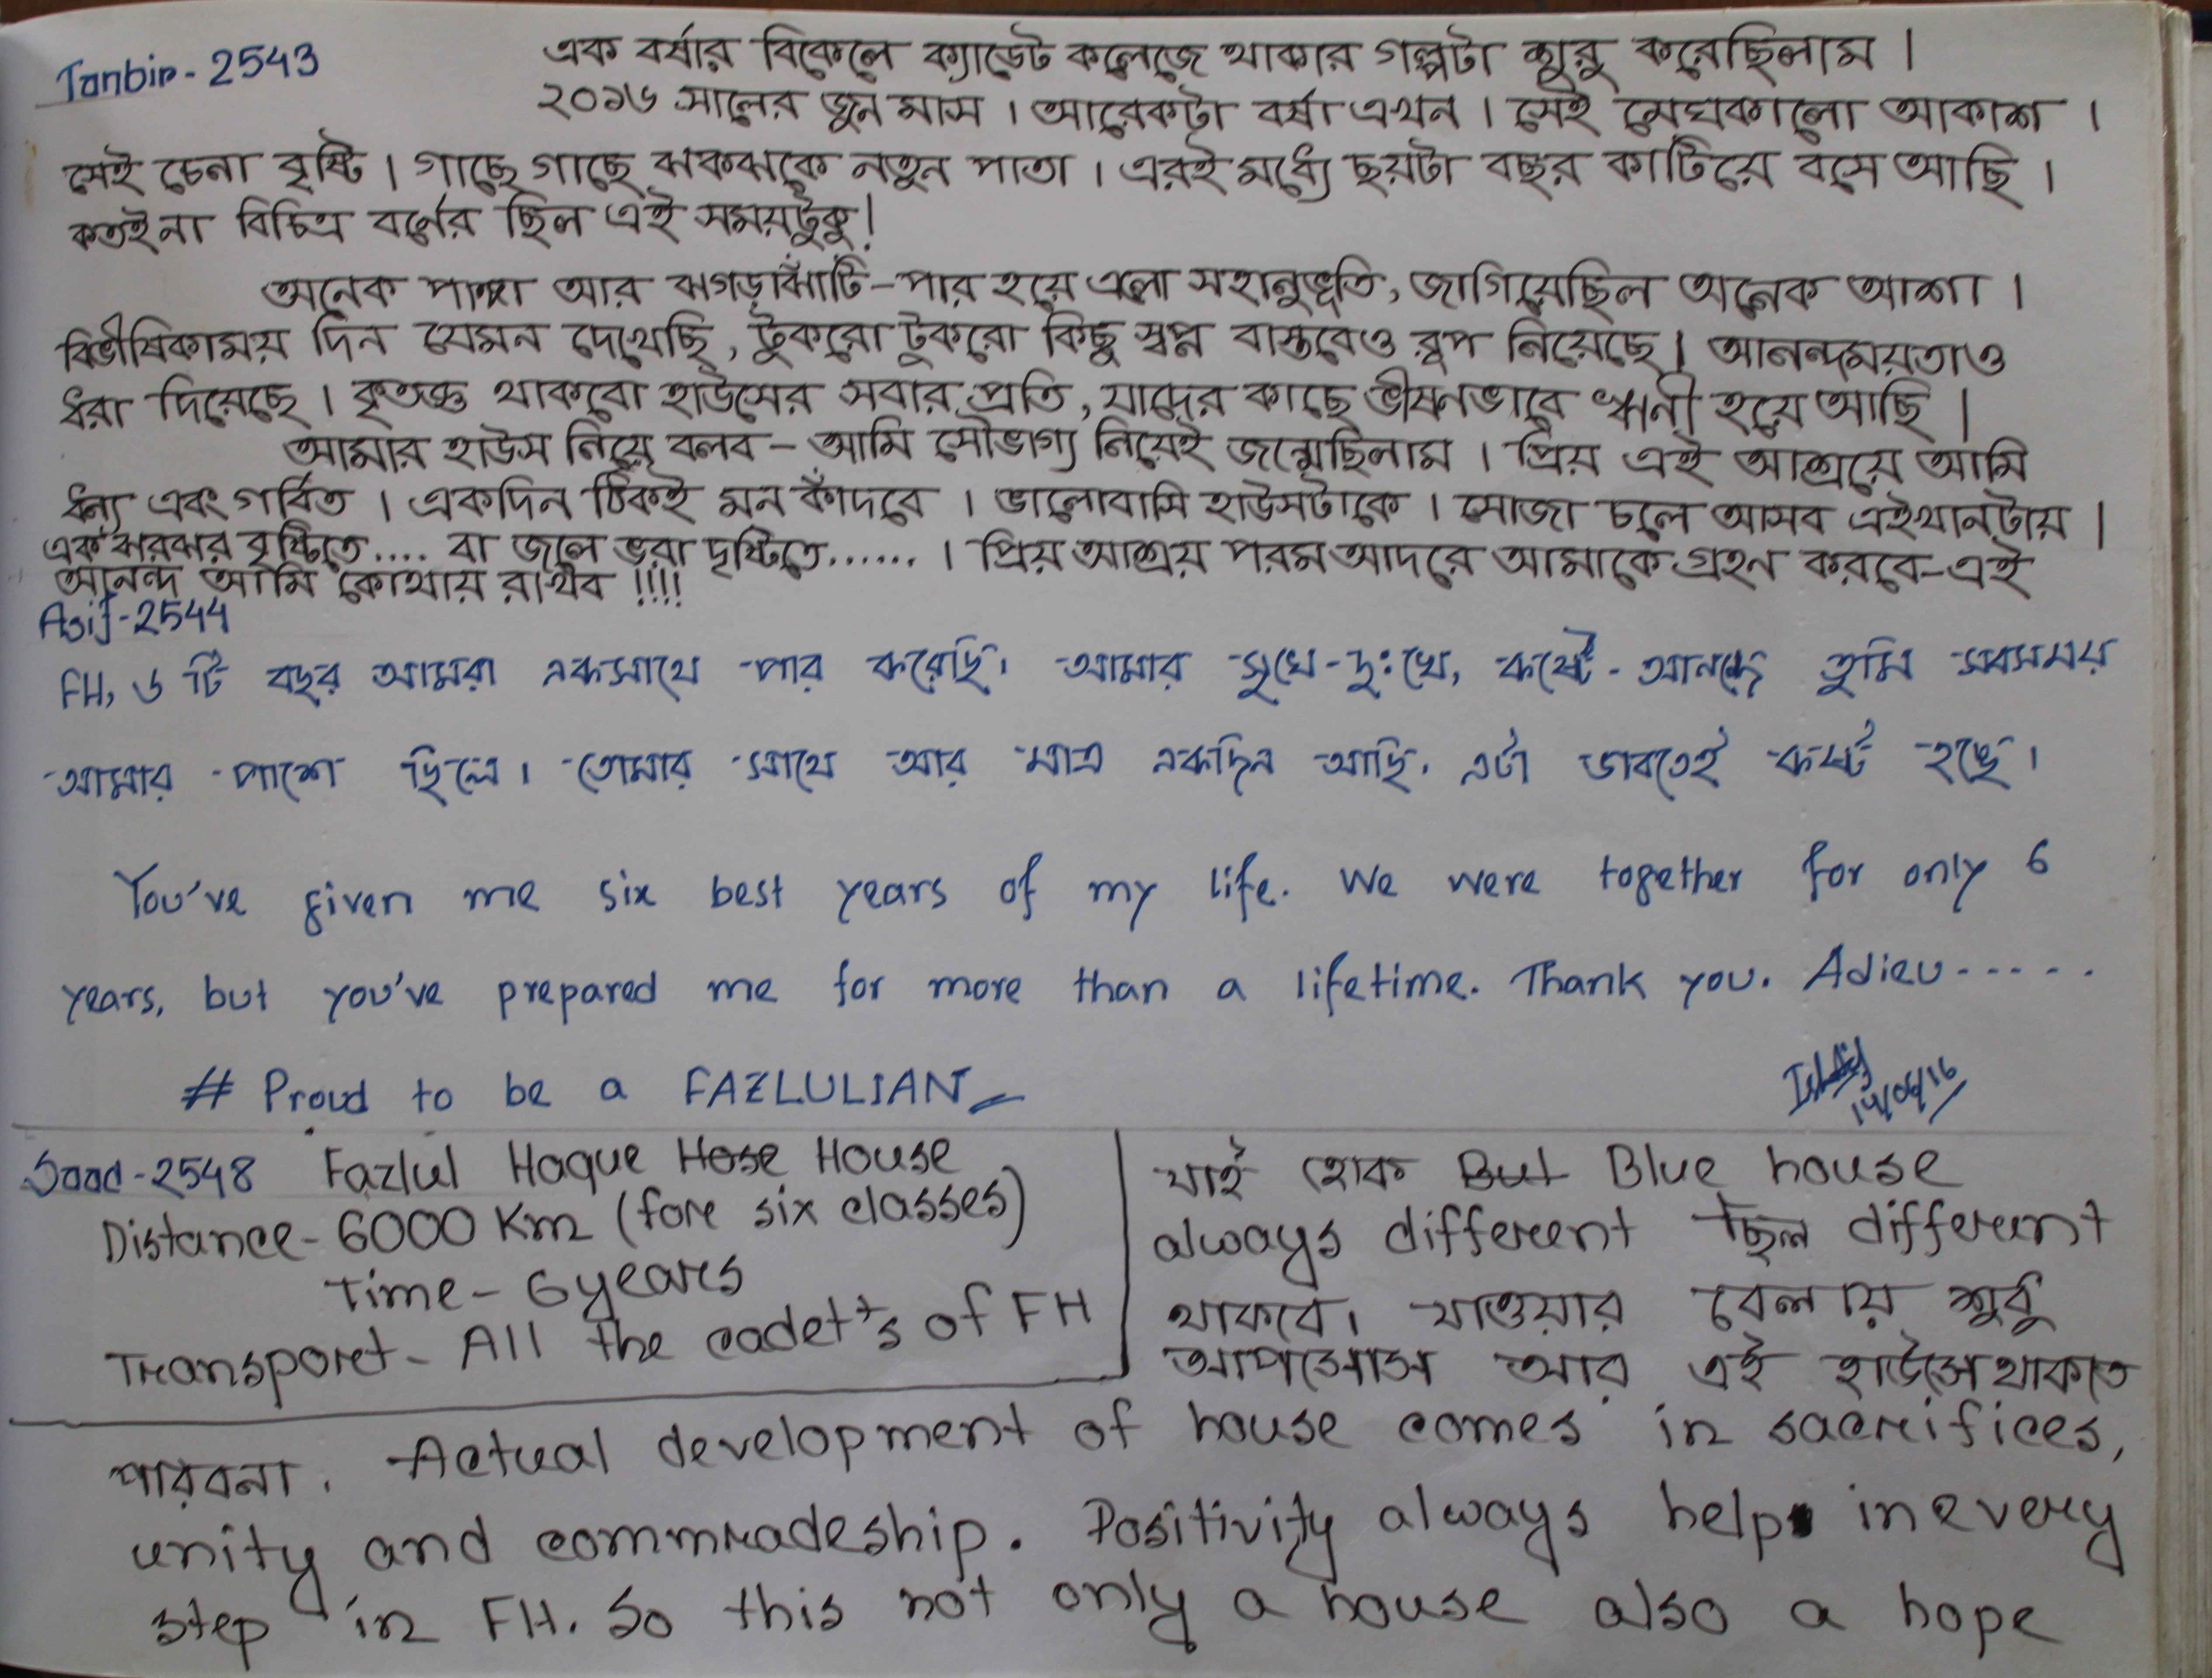 Tanbir - 2543
এক বর্ষার বিকেলে ক্যাডেট কলেজে থাকার গল্পটা শুরু করেছিলাম ।
২০১৬ সালের জুন মাস । আরেকটা বর্ষা এখন । সেই মেঘকালো আকাশ ।
সেই চেনা বৃষ্টি । গাছে গাছে ঝকঝকে নতুন পাতা । এরই মধ্যে ছয়টা বছর কাটিয়ে বসে আছি ।
কতইনা বিচিত্র বর্ণের ছিল এই সময়টুকু !
অনেক পাঙ্গা আর ঝগড়াঝাঁটি - পার হয়ে এলো সহানুভূতি, জাগিয়েছিল অনেক আশা ।
বিভীষিকাময় দিন যেমন দেখেছি, টুকরো টুকরো কিছু স্বপ্ন বাস্তবেও রূপ নিয়েছে । আনন্দময়তাও
ধরা দিয়েছে । কৃতজ্ঞ থাকবো হাউসের সবার প্রতি, যাদের কাছে ভীষনভাবে ঋনী হয়ে আছি ।
আমার হাউস নিয়ে বলব - আমি সৌভাগ্য নিয়েই জন্মেছিলাম । প্রিয় এই আশ্রয়ে আমি
ধন্য এবং গর্বিত । একদিন ঠিকই মন কাঁদবে । ভালোবাসি হাউসটাকে । সোজা চলে আসব এইখানটায় ।
এক ঝরঝর বৃষ্টিতে .... বা জলে ভরা দৃষ্টিতে ...... । প্রিয় আশ্রয় পরম আদরে আমাকে গ্রহন করবে - এই
আনন্দ আমি কোথায় রাখব !!!!
Asif - 2544
FH, ৬ টি বছর আমরা একসাথে পার করেছি। আমার সুখে - দুঃখে, কষ্টে - আনন্দে তুমি সবসময়
আমার পাশে ছিলে। তোমার সাথে আর মাত্র একদিন আছি, এটা ভাবতেই কষ্ট হচ্ছে।
You've given me six best years of my life. We were together for only 6
years, but you've prepared me for more than a lifetime. Thank you. Adieu - - - - -
# Proud to be a FAZLULIAN
14/06/16
Saad - 2548 Fazlul Haque Hose House
Distance - 6000 Km (fore six classes)
Time - 6 years
Transport - All the cadet's of FH
যাই হোক But Blue house
always different ছিল different
থাকবে। যাওয়ার বেলায় শুধু
আপসোস আর এই হাউসে থাকতে
পারবনা . Actual development of house comes in sacrifices,
unity and commradeship. Positivity always help in every
step in FH. So this not only a house also a hope